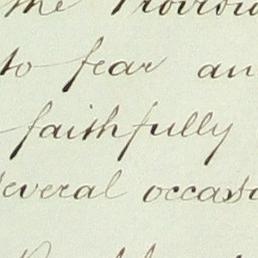 the Provisio
to fear an
faithfully
several occasio